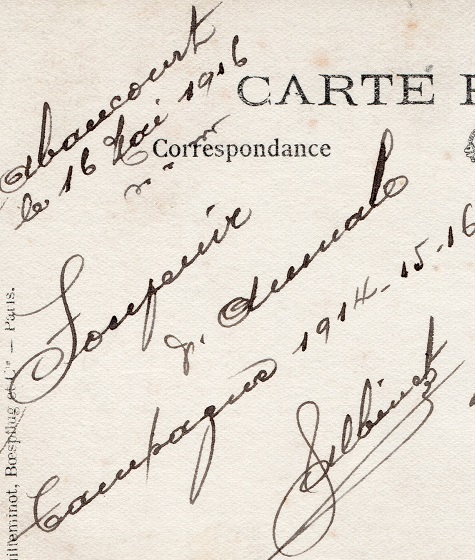 CARTE P
Correspondance
Abancourt
le 16 Mai 1916
Souvenir
d'Aumale
Campagne 1914-15-16
illeminot, Bœspflug et Cie — Paris.